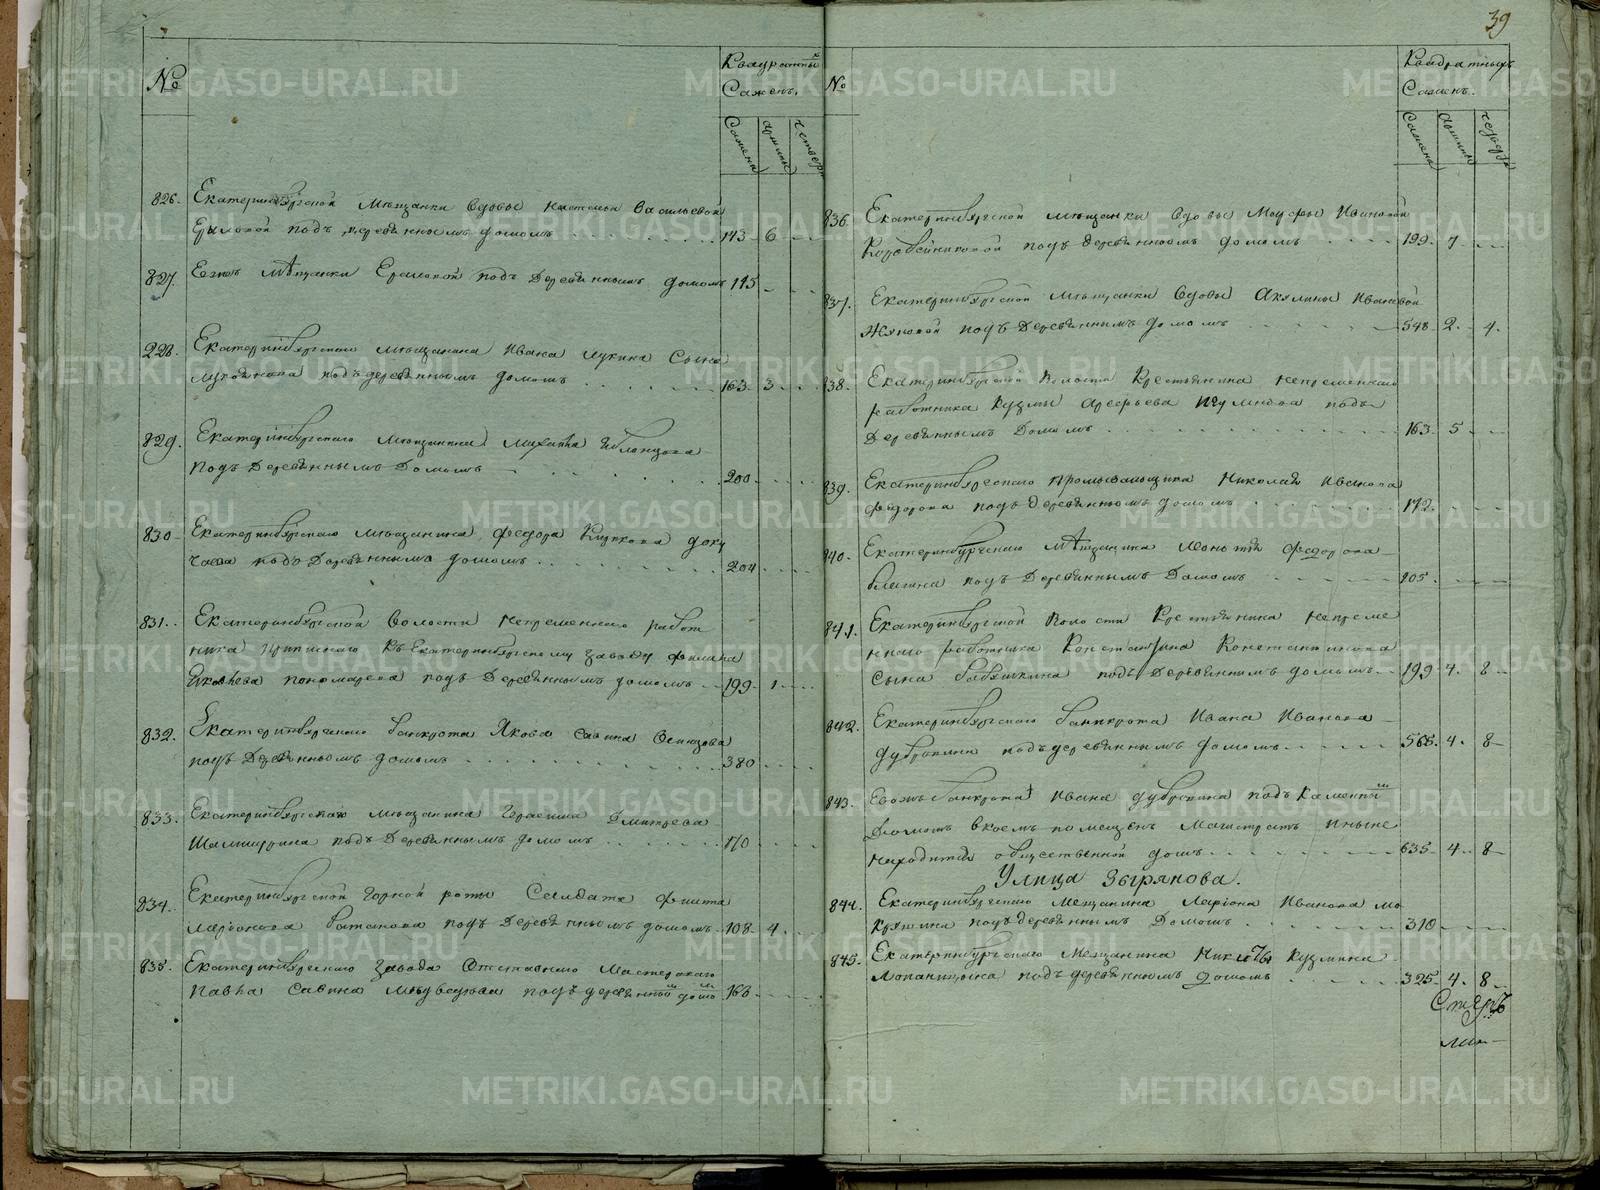 39
№
Квадратныхъ
Саженъ.
Сажени
аршины
четверти
826. Екатеринбургской мѣщанки вдовы Настасьи Васильевой
подъ деревянномъ домомъ 143 6
827. Еяже мѣщанки подъ деревяннымъ домомъ 115
228. Екатеринбургскаго мѣщанина Ивана Лукина сына
подъ деревяннымъ домомъ 163 3
829. Екатеринбургскаго мѣщанина Михаила
подъ деревяннымъ домомъ 200
830 Екатеринбургскаго мѣщанина федора доку
чаева подъ деревяннымъ домомъ 204
831. Екатеринбургской волости непременнаго работ
ника къ Екатеринбургскому заводу
Яковлева пономарева подъ деревянномъ домомъ 199 1
832. Екатеринбургскаго банкрота Якова Савина Осинцова
подъ деревянномъ домомъ 380
833. Екатеринбургскаго мѣщанина Герасима Дмитрева
подъ деревяннымъ домомъ 170
834. Екатеринбургской горной роты Салдата
Ларіонова подъ деревянномъ домомъ 108 4
835. Екатеринбургскаго завода отставнаго мастероваго
Павла Савина подъ деревянный домъ 168
№
Квадратныхъ
Саженъ.
Сажени
аршины
четверти
836. Екатеринбургской мѣщанки вдовы Марфы Ивановой
Коробейниковой подъ деревянномъ домомъ 199 7
837. Екатеринбургской мѣщанки вдовы Акулины Ивановой
подъ деревяннымъ домомъ 548 2 4
838. Екатеринбургской волости Крестьянина непременнаго
работника Кузмы подъ
деревяннымъ домомъ 163 5
839. Екатеринбургскаго промышленника Николая Иванова
федорова подъ деревянномъ домомъ 172
840. Екатеринбургскаго мѣщанина Леонтия федорова
подъ деревяннымъ домомъ 105
841. Екатеринбургской волости Крестьянина непреме
ннаго работника Константина Константинова
сына бабушкина подъ деревяннымъ домомъ 199 4 8
842. Екатеринбургскаго банкрота Ивана Иванова
дубровина подъ деревяннымъ домомъ 565 4 8
843. Егожъ банкрота Ивана дубровина подъ каменнымъ
домомъ вкоемъ помещенъ магистратъ иныне
находится общественной домъ 635 4 8
Улица Зырянова.
844. Екатеринбургскаго мещанина Ларіона Иванова мо
крушина подъ деревяннымъ домомъ 310
845. Екатеринбургскаго мещанина Никиты Кузмина
подъ деревянномъ домомъ 325 4 8